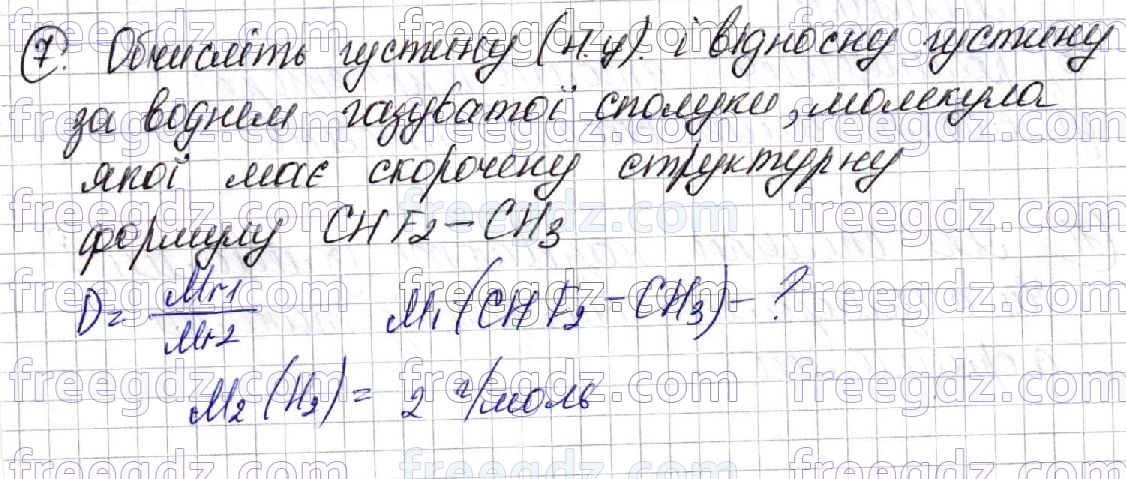 7. Обчисліть густину (н.у). і відносну густину
за воднем газуватої сполуки, молекула
якої має скорочену структурну
формулу CHF2-CH3
D= Mr1/Mr2 M1(CHF2-CH3)-?
M2(H2)= 2 г/моль
freegdz.com